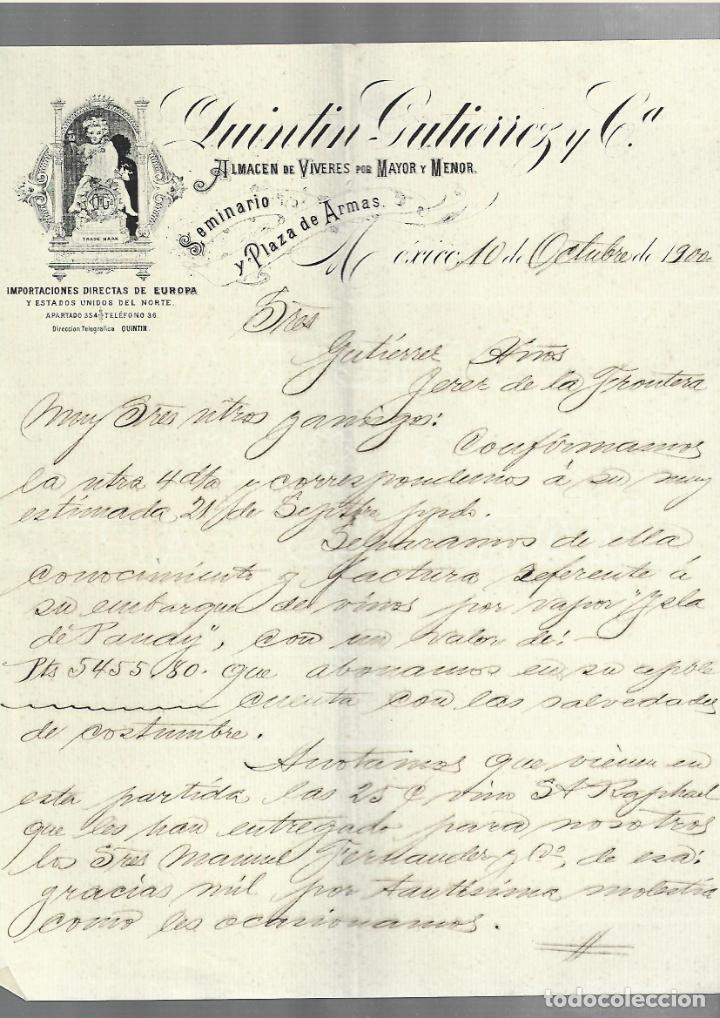 Quintin Gutierrez y Cª
ALMACEN DE VIVERES POR MAYOR Y MENOR.
Seminario
y Plaza de Armas.
TRADE MARK
IMPORTACIONES DIRECTAS DE EUROPA
Y ESTADOS UNIDOS DEL NORTE.
APARTADO 354 TELÉFONO 36.
Direccion Telegrafica QUINTIN.
México, 10 de Octubre de 1900
Sres
Gutiérrez Hnos
Jerez de la Frontera
Muy Sres ntros y amigos:
Confirmamos
la ntra 4 dto y correspondemos á su muy
estimada 21 de Septbre ppdo.
Separamos de ella
conocimiento y factura referente á
su embarque de vinos por vapor "Ysla
de Panay", con un valor de:
Pts 5455.80. que abonamos en su aple
cuenta con las salvedades
de costumbre.
Anotamos que vienen en
esta partida las 25 c vino St Raphael
que les han entregado para nosotros
los Sres Manuel Fernandez y Cº, de esa:
gracias mil por tantísima molestia
como les ocasionamos.
todocoleccion
todocoleccion.net